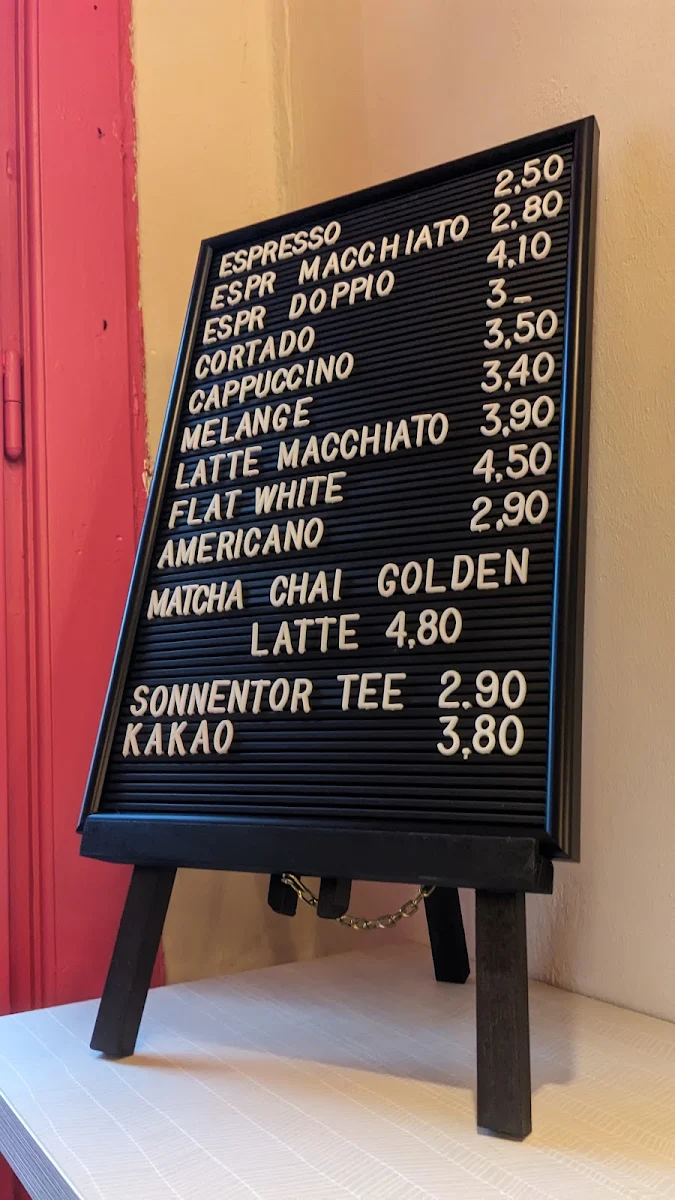 ESPRESSO 2,50
ESPR MACCHIATO 2,80
ESPR DOPPIO 4,10
CORTADO 3_
CAPPUCCINO 3,50
MELANGE 3,40
LATTE MACCHIATO 3,90
FLAT WHITE 4,50
AMERICANO 2,90
MATCHA CHAI GOLDEN
LATTE 4,80
SONNENTOR TEE 2.90
KAKAO 3,80